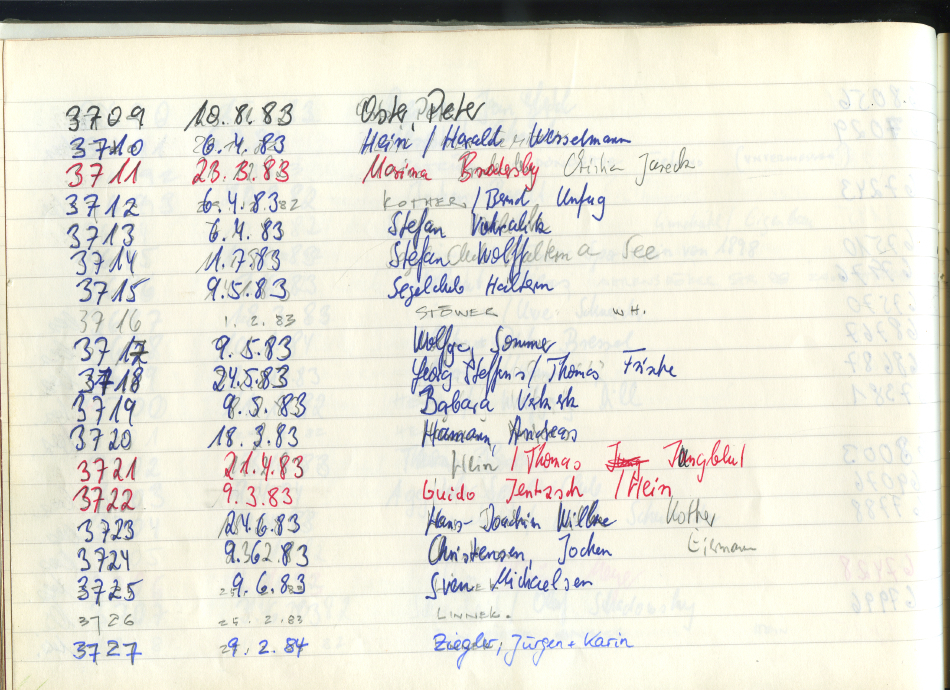 3709 10.8.83 Oster Peter
3710 26.4.83 Hein / Harald Wesselmann
3711 23.3.83 Marina Brodersby Jareck
3712 6.4.83 KOTHER / Bernd Unfug
3713 6.4.83 Stefan
3714 11.7.83 Stefan Wolff Haltern a See
3715 9.5.83 Segelclub Haltern
3716 1.2.83 STÖWER W.H.
3717 9.5.83 Wolfg. Sommer
3718 24.5.83 Georg Steffens / Thomas
3719 9.5.83 Barbara
3720 18.3.83 Hamann, Andreas
3721 21.4.83 Hein / Thomas Jungblut
3722 9.3.83 Guido Jentzsch / Hein
3723 24.6.83 Hans-Joachim Kother
3724 9.6.83 Christensen, Jochen Eiermann
3725 9.6.83 Sven Michaelsen
3726 25.2.83 LINNEK.
3727 9.2.84 Ziegler, Jürgen + Karin